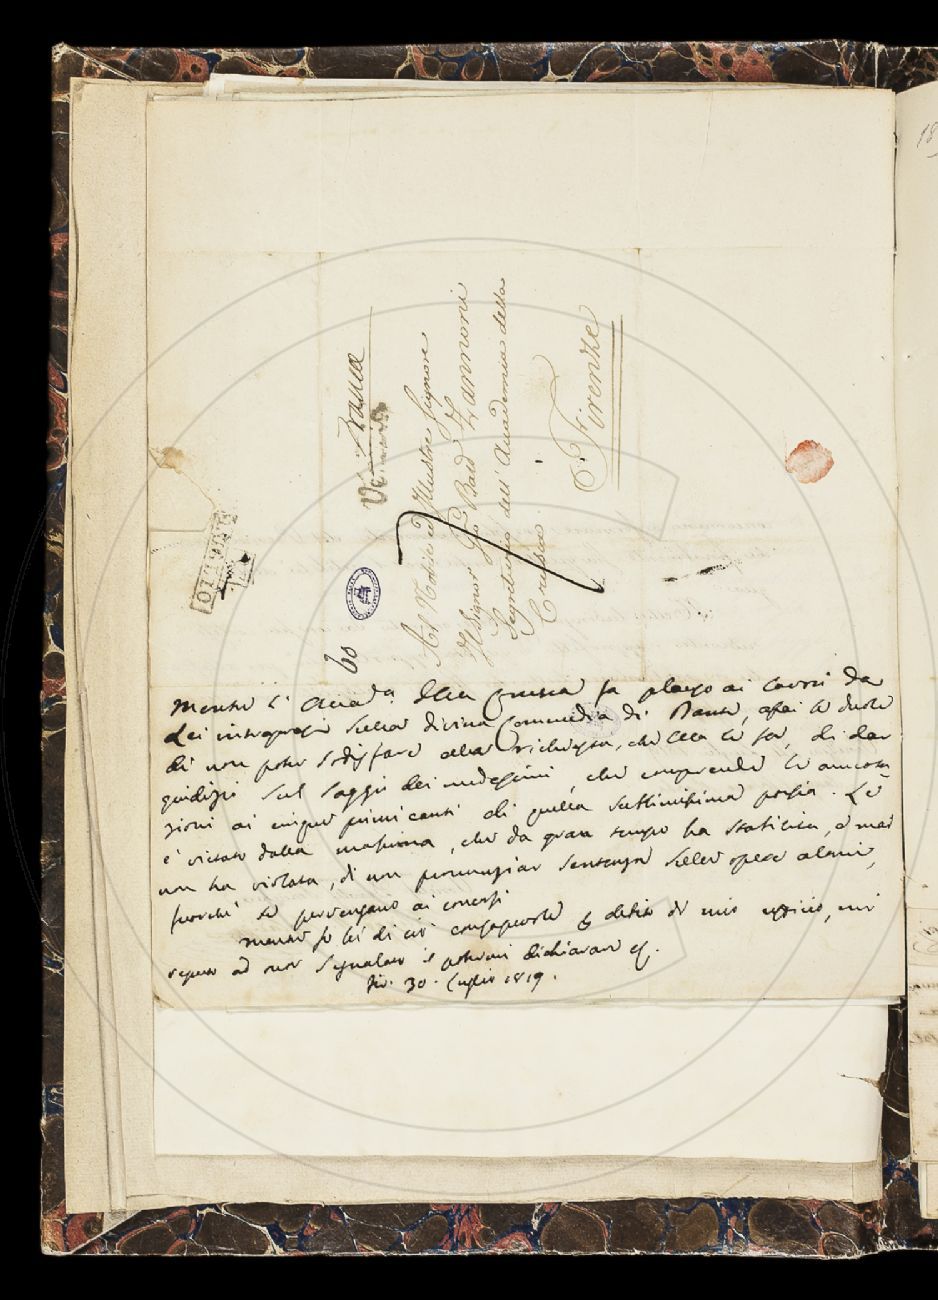 Franca
Al Nobile ed Illustre Signore
Il Signor Gio Batta Zannoni
Segretario dell' Accademia della
Crusca.
Firenze
60
Mentre l' Accad.a della Crusca fa plauso ai lavori da
Lei intrapresi sulla divina Commedia di Dante, assai le duole
di non poter sodisfare alla richiesta, che Ella le fa, di dar
giudizio sul saggio dei medesimi, che comprende le annota
zioni ai cinque primi canti di quella sublimissima poesia. Le
è vietato dalla massima, che da gran tempo ha stabilita, e mai
non ha violata, di non pronunziar sentenza sulle opere altrui,
fuorchè se pervengano ai concorsi
Mentre fo Lei di ciò consapevole per debito di mio uffizio, mi
reputo ad onor segnalato il potermi dichiarare
Fir. 30. Luglio 1819.